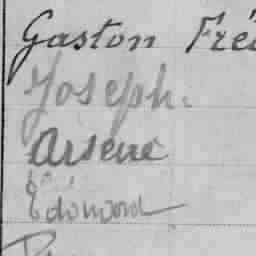 Gaston Fré
Joseph.
Arsène
Edouard